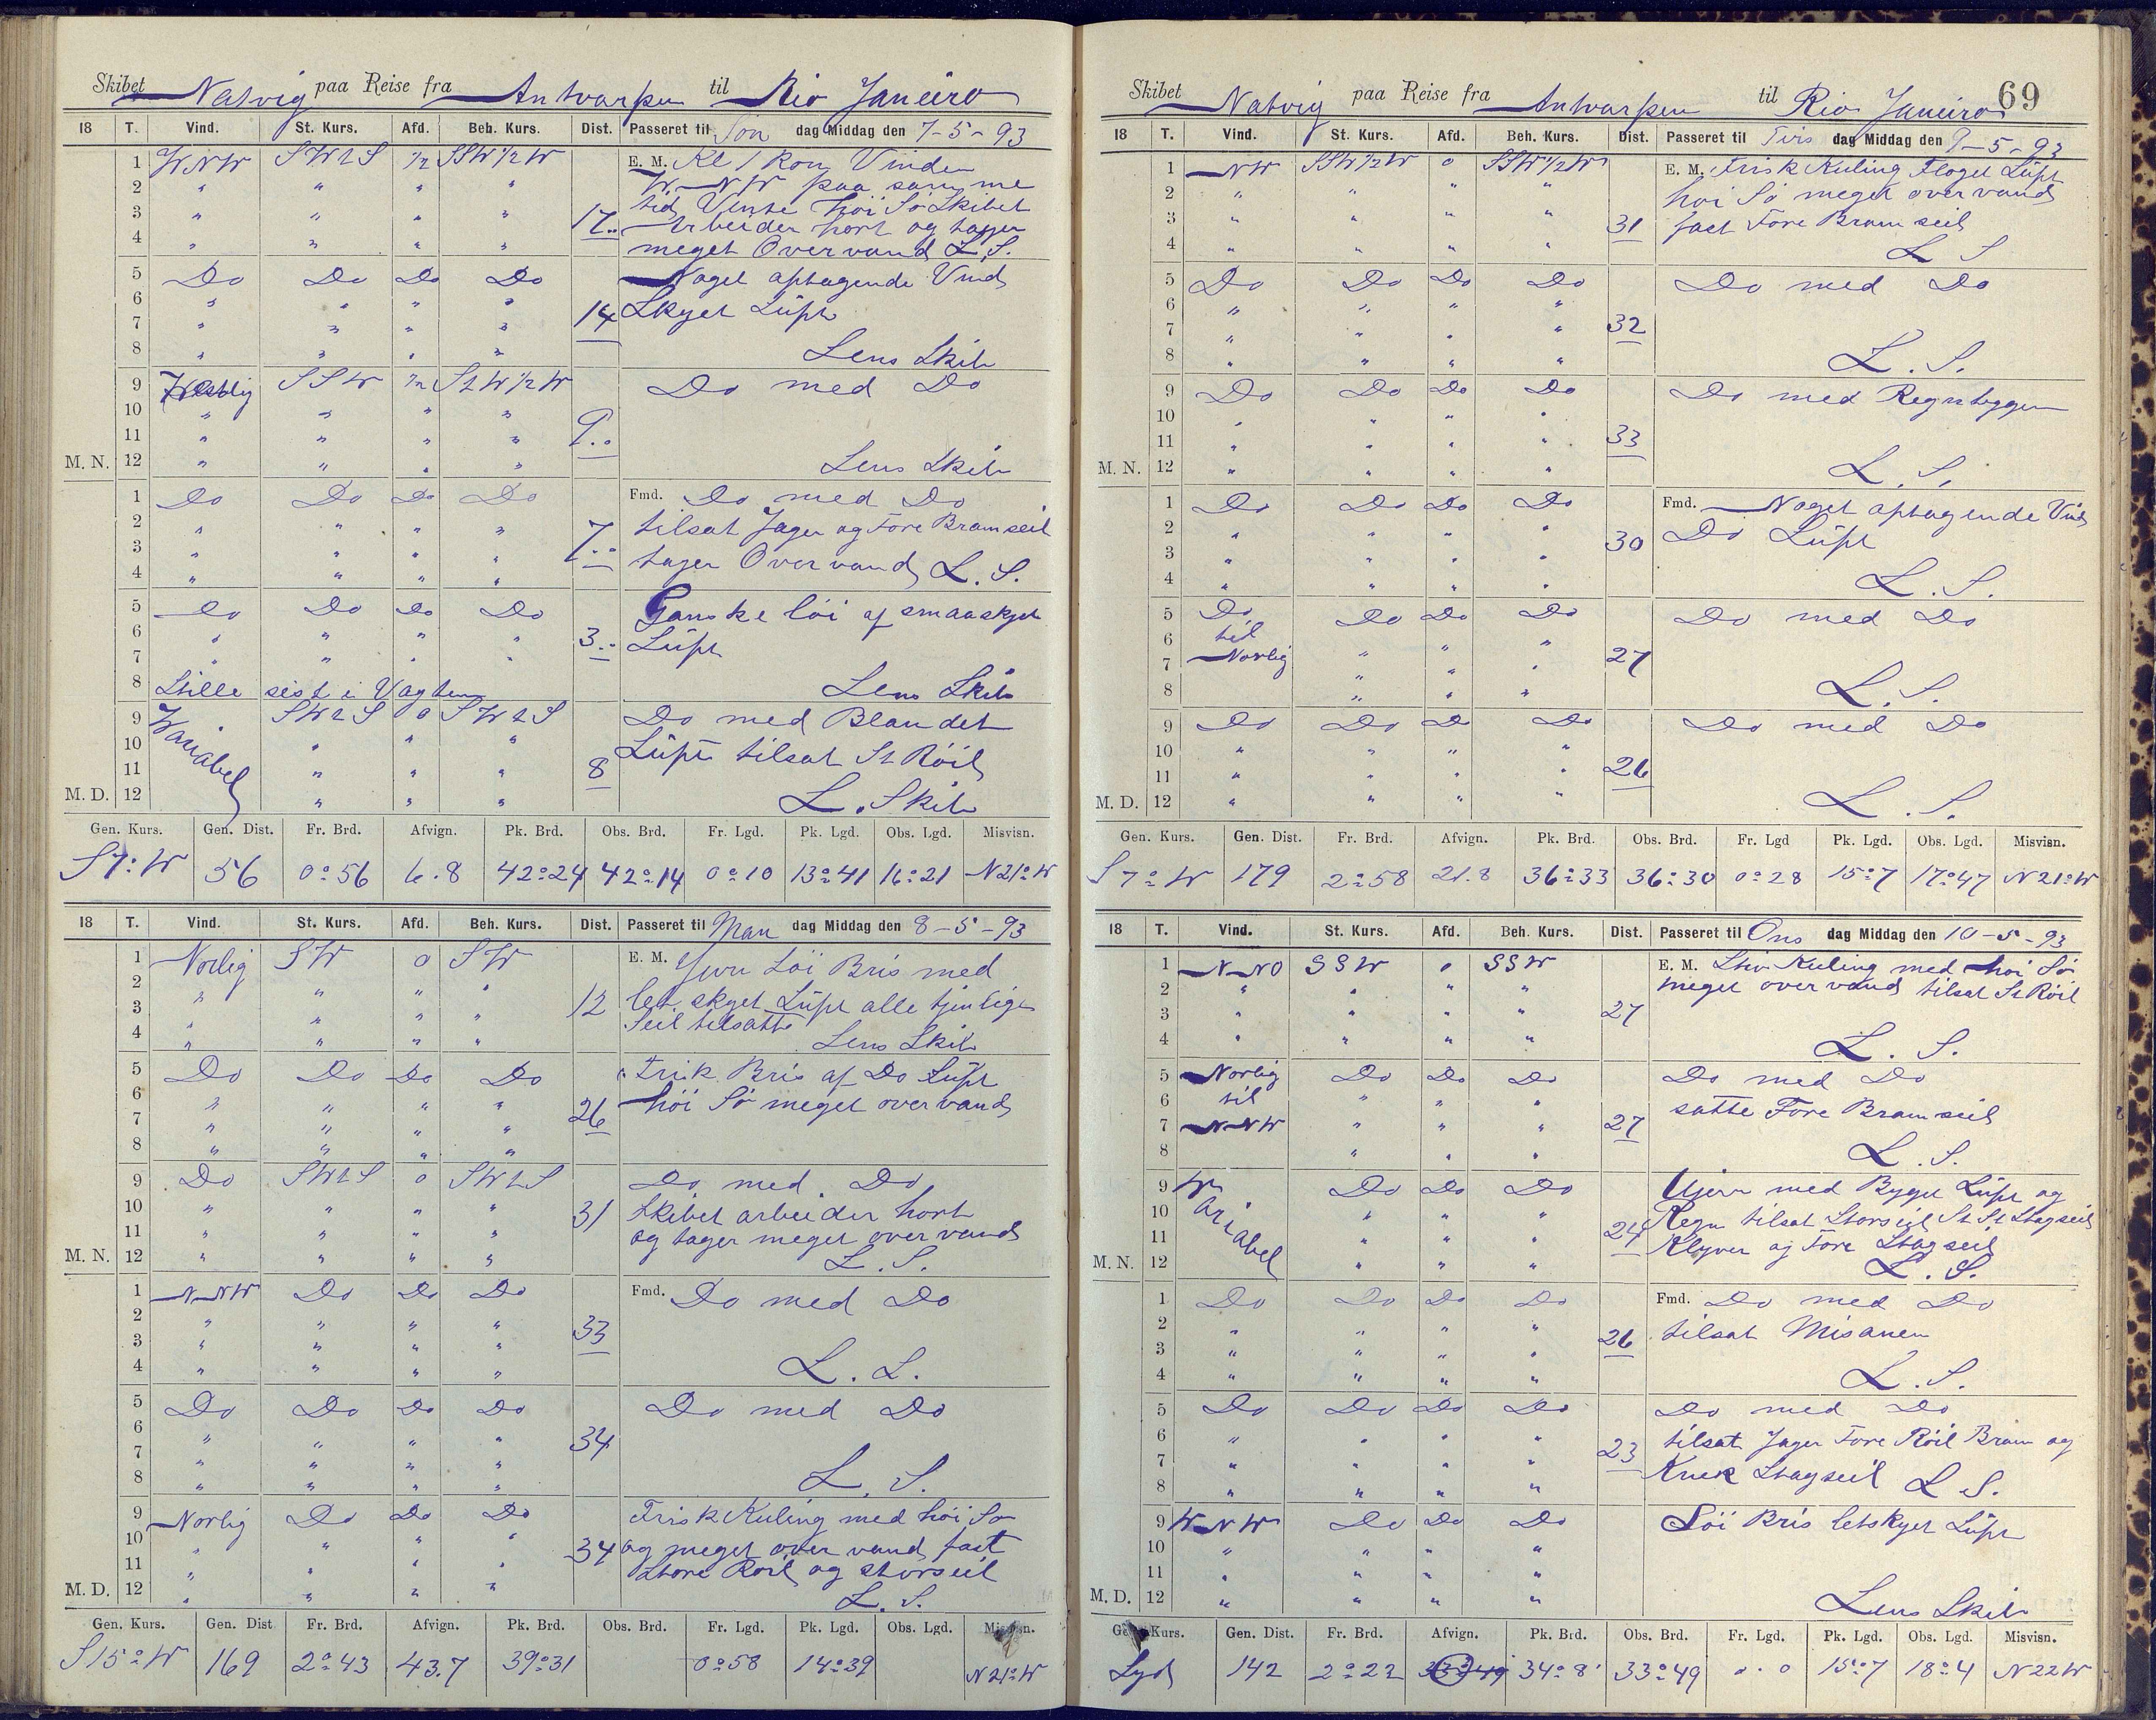 Skibet Natvig paa Reise fra Antvarpen til Rio Janeiro
18 T. Vind. St. Kurs. Afd. Beh. Kurs. Dist. Passeret til Søn dag Middag den 7-5-93
1 WNW SWtS ½ SSW½W E. M. Kl 1 kom Vinden
2 " " " " W-NW paa samme
3 " " " " 17.. tid Vente høi Sø Skibet
4 " " " " Arbeider hort og tager
meget Overvand L.S.
5 Do Do Do Do Noget aptagende Vind
6 " " " " 14 Skyet Lüft
7 " " " "
8 " " " " Lens Skib
9 Westlig SSW ½ StW½W Do med Do
10 " " " "
11 " " " " 9..
M. N. 12 " " " " Lens Skib
1 Do Do Do Do Fmd. Do med Do
2 " " " " 7.. tilsat Jager og Fore Bramseil
3 " " " " tager Overvand L.S.
4 " " " "
5 Do Do Do Do Ganske löi af smaaskyet
6 " " " " 3.. Lüft
7 " " " "
8 Stille sist i Vagten Lens Skib
9 Wariabel SWtS 0 SWtS Do med Blandet
10 " " " Lüft tilsat St Röil
11 " " " 8
M. D. 12 " " " L. Skib
Gen. Kurs. Gen. Dist. Fr. Brd. Afvign. Pk. Brd. Obs. Brd. Fr. Lgd. Pk. Lgd. Obs. Lgd. Misvisn.
S7°W 56 0°56 6.8 42°24 42°14 0°10 13°41 16°21 N21°W
18 T. Vind. St. Kurs. Afd. Beh. Kurs. Dist. Passeret til Man dag Middag den 8-5-93
1 Norlig SW 0 SW E. M. Jevn Löi Bris med
2 " " " " let skyet Lüft alle tjenlige
3 " " " " 12 Seil tilsatte
4 " " " " Lens Skib
5 Do Do Do Do Frisk Bris af Do Lüft
6 " " " " 26 höi Sø meget overvand
7 " " " "
8 " " " "
9 Do SWtS 0 SWtS Do med Do
10 " " " " 31 Skibet arbeider hort
11 " " " " og tager meget overvand
M. N. 12 " " " " L.S.
1 NNW Do Do Do Fmd. Do med Do
2 " " " " 33
3 " " " "
4 " " " " L.L.
5 Do Do Do Do Do med Do
6 " " " " 34
7 " " " "
8 " " " " L.S.
9 Norlig Do Do Do Frisk Kuling med höi Sø
10 " " " " 34 og meget over vand fast
11 " " " " Store Röil og storseil
M. D. 12 " " " " L.S.
Gen. Kurs. Gen. Dist Fr. Brd. Afvign. Pk. Brd. Obs. Brd. Fr. Lgd. Pk. Lgd. Obs. Lgd. Misvisn.
S15°W 169 2°43 43.7 39°31 0°58 14°39 N21°W
69
Skibet Natvig paa Reise fra Antvarpen til Rio Janeiro
18 T. Vind. St. Kurs. Afd. Beh. Kurs. Dist. Passeret til Tirs dag Middag den 9-5-93
1 NW SSW½W 0 SSW½W E. M. Frisk Kuling Floget Lüft
2 " " " " höi Sø meget overvand
3 " " " " 31 fast Fore Bramseil
4 " " " " L S
5 Do Do Do Do Do med Do
6 " " " "
7 " " " " 32
8 " " " " L.S.
9 Do Do Do Do Do med Regnbygger
10 " " " "
11 " " " " 33
M. N. 12 " " " " L.S.
1 Do Do Do Do Fmd. Noget aptagende Vind
2 " " " " 30 Do Lüft
3 " " " "
4 " " " " L.S.
5 Do Do Do Do Do med Do
6 til " " "
7 Norlig " " " 27
8 " " " L.S.
9 Do Do Do Do Do med Do
10 " " " "
11 " " " " 26
M. D. 12 " " " " L.S.
Gen. Kurs. Gen. Dist. Fr. Brd. Afvign. Pk. Brd. Obs. Brd. Fr. Lgd Pk. Lgd. Obs. Lgd. Misvisn.
S7°W 179 2°58 21.8 36°33 36°30 0°28 15°7 17°47 N21°W
18 T. Vind. St. Kurs. Afd. Beh. Kurs. Dist. Passeret til Ons dag Middag den 10-5-93
1 N-NO SSW 0 SSW E. M. Stiv Kuling med höi Sø
2 " " " " meget overvand tilsat St Röil
3 " " " " 27
4 " " " " L.S.
5 Norlig Do Do Do Do med Do
6 til " " " satte Fore Bramseil
7 NNW " " " 27
8 " " " L.S.
9 Wariabel Do Do Do Ujevn med Bygget Lüft og
10 " " " Regn tilsat Storseil St St Stagseil
11 " " " 24 Klyver og Fore Stagseil
M. N. 12 " " " L.S.
1 Do Do Do Do Fmd. Do med Do
2 " " " " 26 tilsat Misanen
3 " " " "
4 " " " " L.S.
5 Do Do Do Do Do med Do
6 " " " " 23 tilsat Jager Fore Röil Bram og
7 " " " " Stagseil L S.
8 " " " "
9 WNW Do Do Do Löi Bris letskyet Lüft
10 " " " "
11 " " " "
M. D. 12 " " " " Lens Skib
Gen. Kurs. Gen. Dist. Fr. Brd. Afvign. Pk. Brd. Obs. Brd. Fr. Lgd. Pk. Lgd. Obs. Lgd. Misvisn.
Syd 142 2°22 34°8' 33°49 0.0 15°7 18°4 N22W